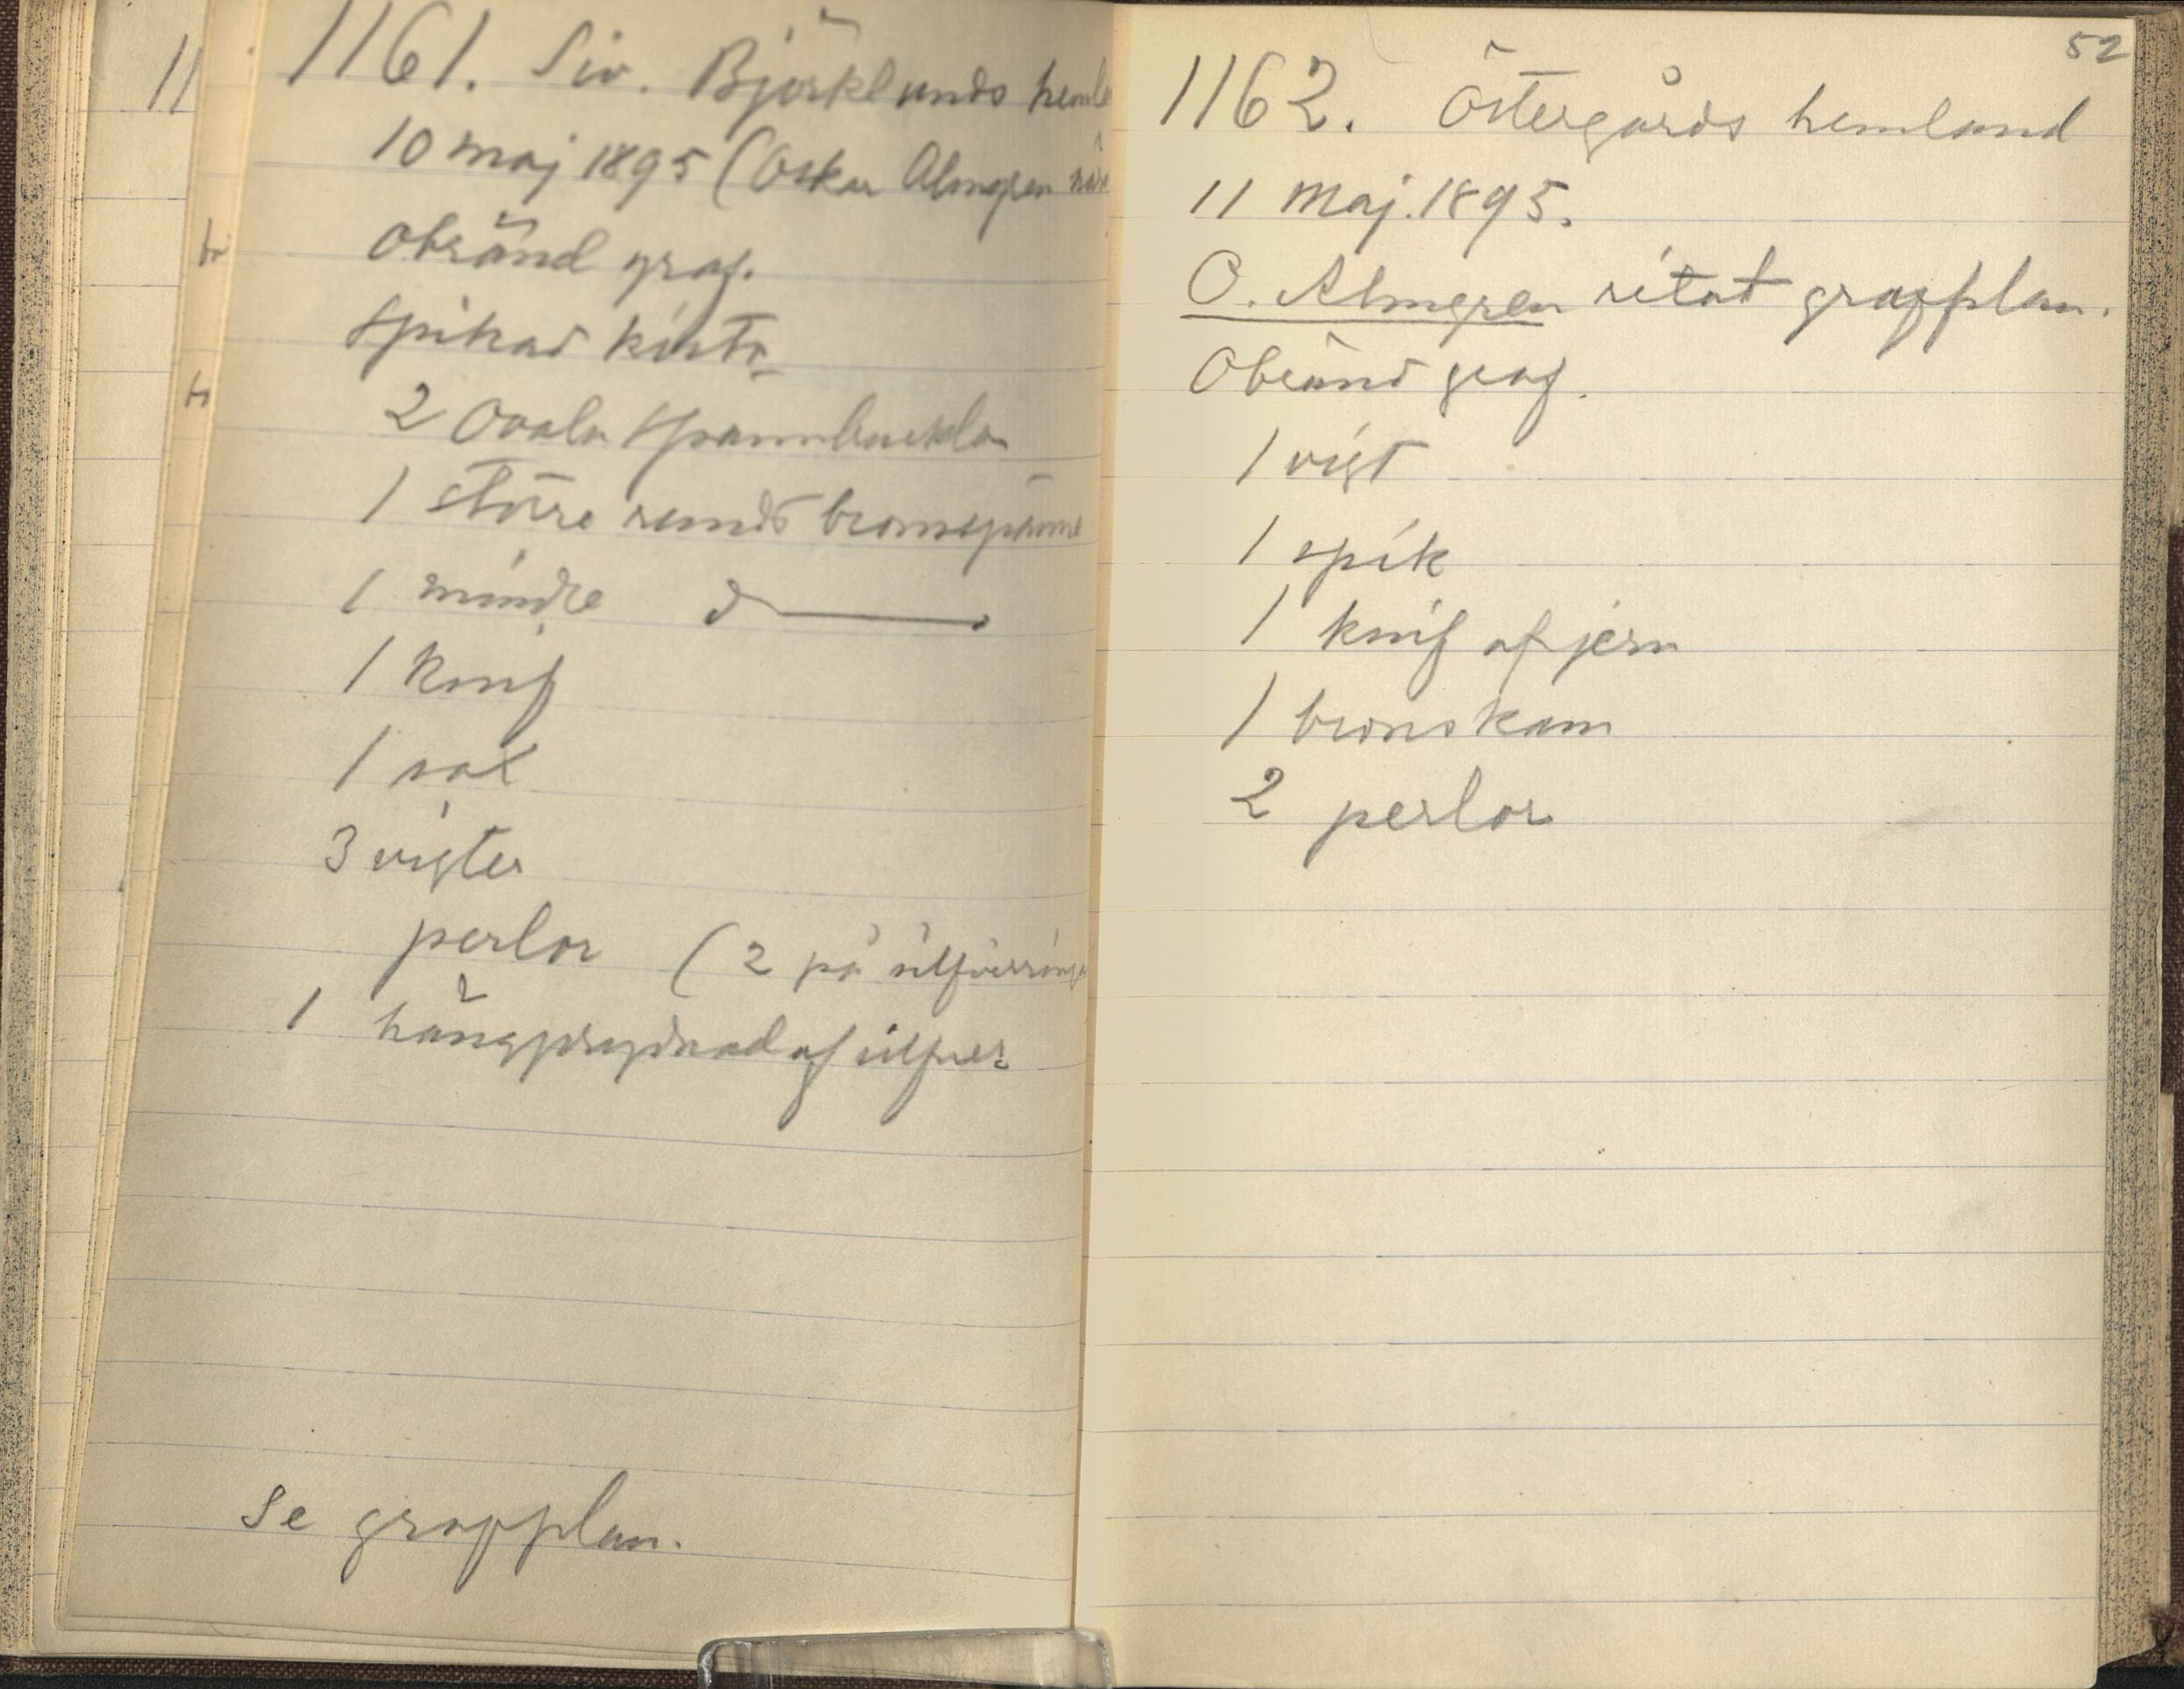 1161. Siv. Björklunds heml
10 maj 1895 (Oskar Almgren när
Obränd graf.
Spikad kista
2 Ovala Spännbucklor
1 större rundt bronsspänne
1 mindre d———
1 knif
1 sax
3 vigter
perlor (2 på silfverringa
1 hängprydnad af silfver
Se grafplan.
52
1162. Östergårds hemland
11 Maj. 1895.
O. Almgren ritat grafplan.
Obränd graf.
1 vigt
1 spik
1 knif af jern
1 bronskam
2 perlor